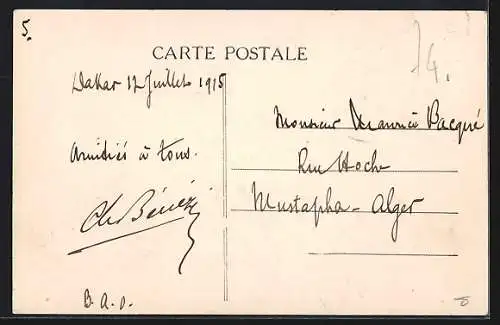 5.
74.
CARTE POSTALE
Dakar 12 Juillet 1915
Amitiés à tous.
Ch Bénézi
B.A.O.
Monsieur Maurice Bacqué
Rue Hoche
Mustapha - Alger